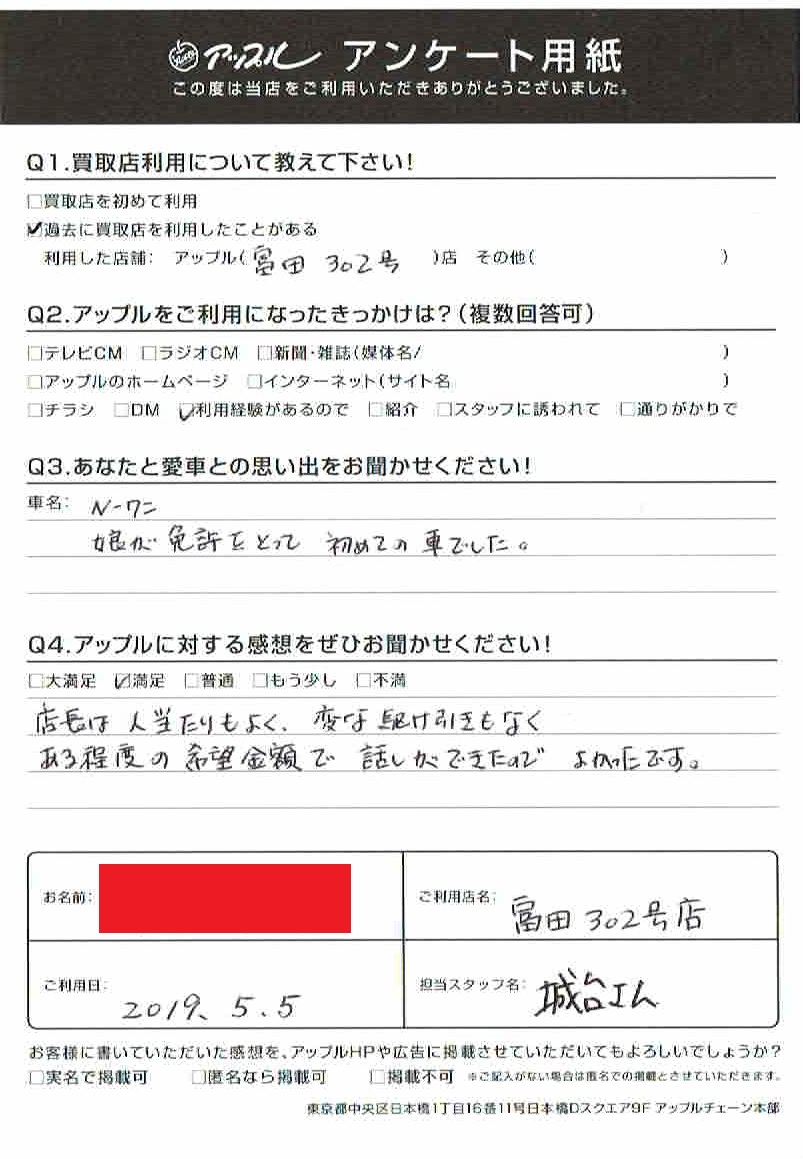 アップル アンケート用紙
この度は当店をご利用いただきありがとうございました。
Q1.買取店利用について教えて下さい!
□買取店を初めて利用
☑過去に買取店を利用したことがある
利用した店舗: アップル(富田 302号)店 その他( )
Q2.アップルをご利用になったきっかけは?(複数回答可)
□テレビCM □ラジオCM □新聞・雑誌(媒体名/ )
□アップルのホームページ □インターネット(サイト名 )
□チラシ □DM ☑利用経験があるので □紹介 □スタッフに誘われて □通りがかりで
Q3.あなたと愛車との思い出をお聞かせください!
車名: N-ワン
娘が免許をとって 初めての車でした。
Q4.アップルに対する感想をぜひお聞かせください!
□大満足 ☑満足 □普通 □もう少し □不満
店長は人当たりもよく、変な駆け引きもなく
ある程度の希望金額で 話しができたので よかったです。
お名前:
ご利用店名: 富田302号店
ご利用日: 2019.5.5
担当スタッフ名: さん
お客様に書いていただいた感想を、アップルHPや広告に掲載させていただいてもよろしいでしょうか?
□実名で掲載可 □匿名なら掲載可 □掲載不可 ※ご記入がない場合は匿名での掲載とさせていただきます。
東京都中央区日本橋1丁目16番11号日本橋Dスクエア9F アップルチェーン本部